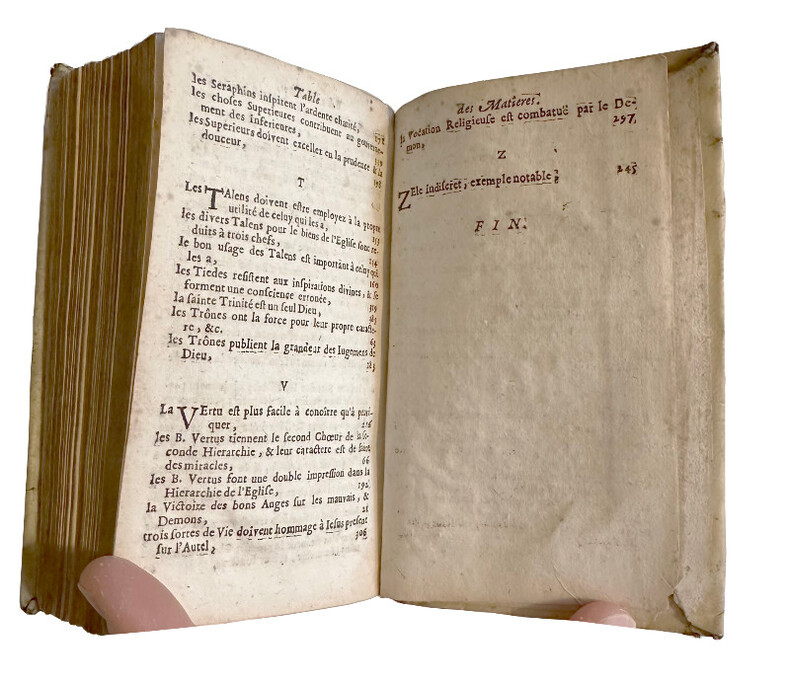 Table
les Seraphins inſpirent l'ardente charité,
les choſes Superieures contribuent au gouverne-
ment des Inferieures,
les Superieurs doivent exceller en la prudence & la
douceur,
T
Les TAlens doivent eſtre employez à la propre
utilité de celuy qui les a,
les divers Talens pour le biens de l'Egliſe ſont re-
duits à trois chefs,
le bon uſage des Talens eſt important à celuy qui
les a,
les Tiedes reſiſtent aux inſpirations divines, & ſe
forment une conſcience erronée,
la ſainte Trinité eſt un ſeul Dieu,
les Trônes ont la force pour leur propre caracte-
re, &c.
les Trônes publient la grandeur des Iugemens de
Dieu,
V
La VErtu eſt plus facile à conoître qu'à prati-
quer,
les B. Vertus tiennent le ſecond Chœur de la ſe-
conde Hierarchie, & leur caractere eſt de faire
des miracles, 66
les B. Vertus font une double impreſſion dans la
Hierarchie de l'Egliſe, 192
la Victoire des bons Anges ſur les mauvais, &
Demons,
trois ſortes de Vie doivent hommage à Jeſus preſent
ſur l'Autel, 306
des Matieres.
la Vocation Religieuſe eſt combatuë par le De-
mon, 297
Z
ZEle indiſcret, exemple notable, 245
FIN.